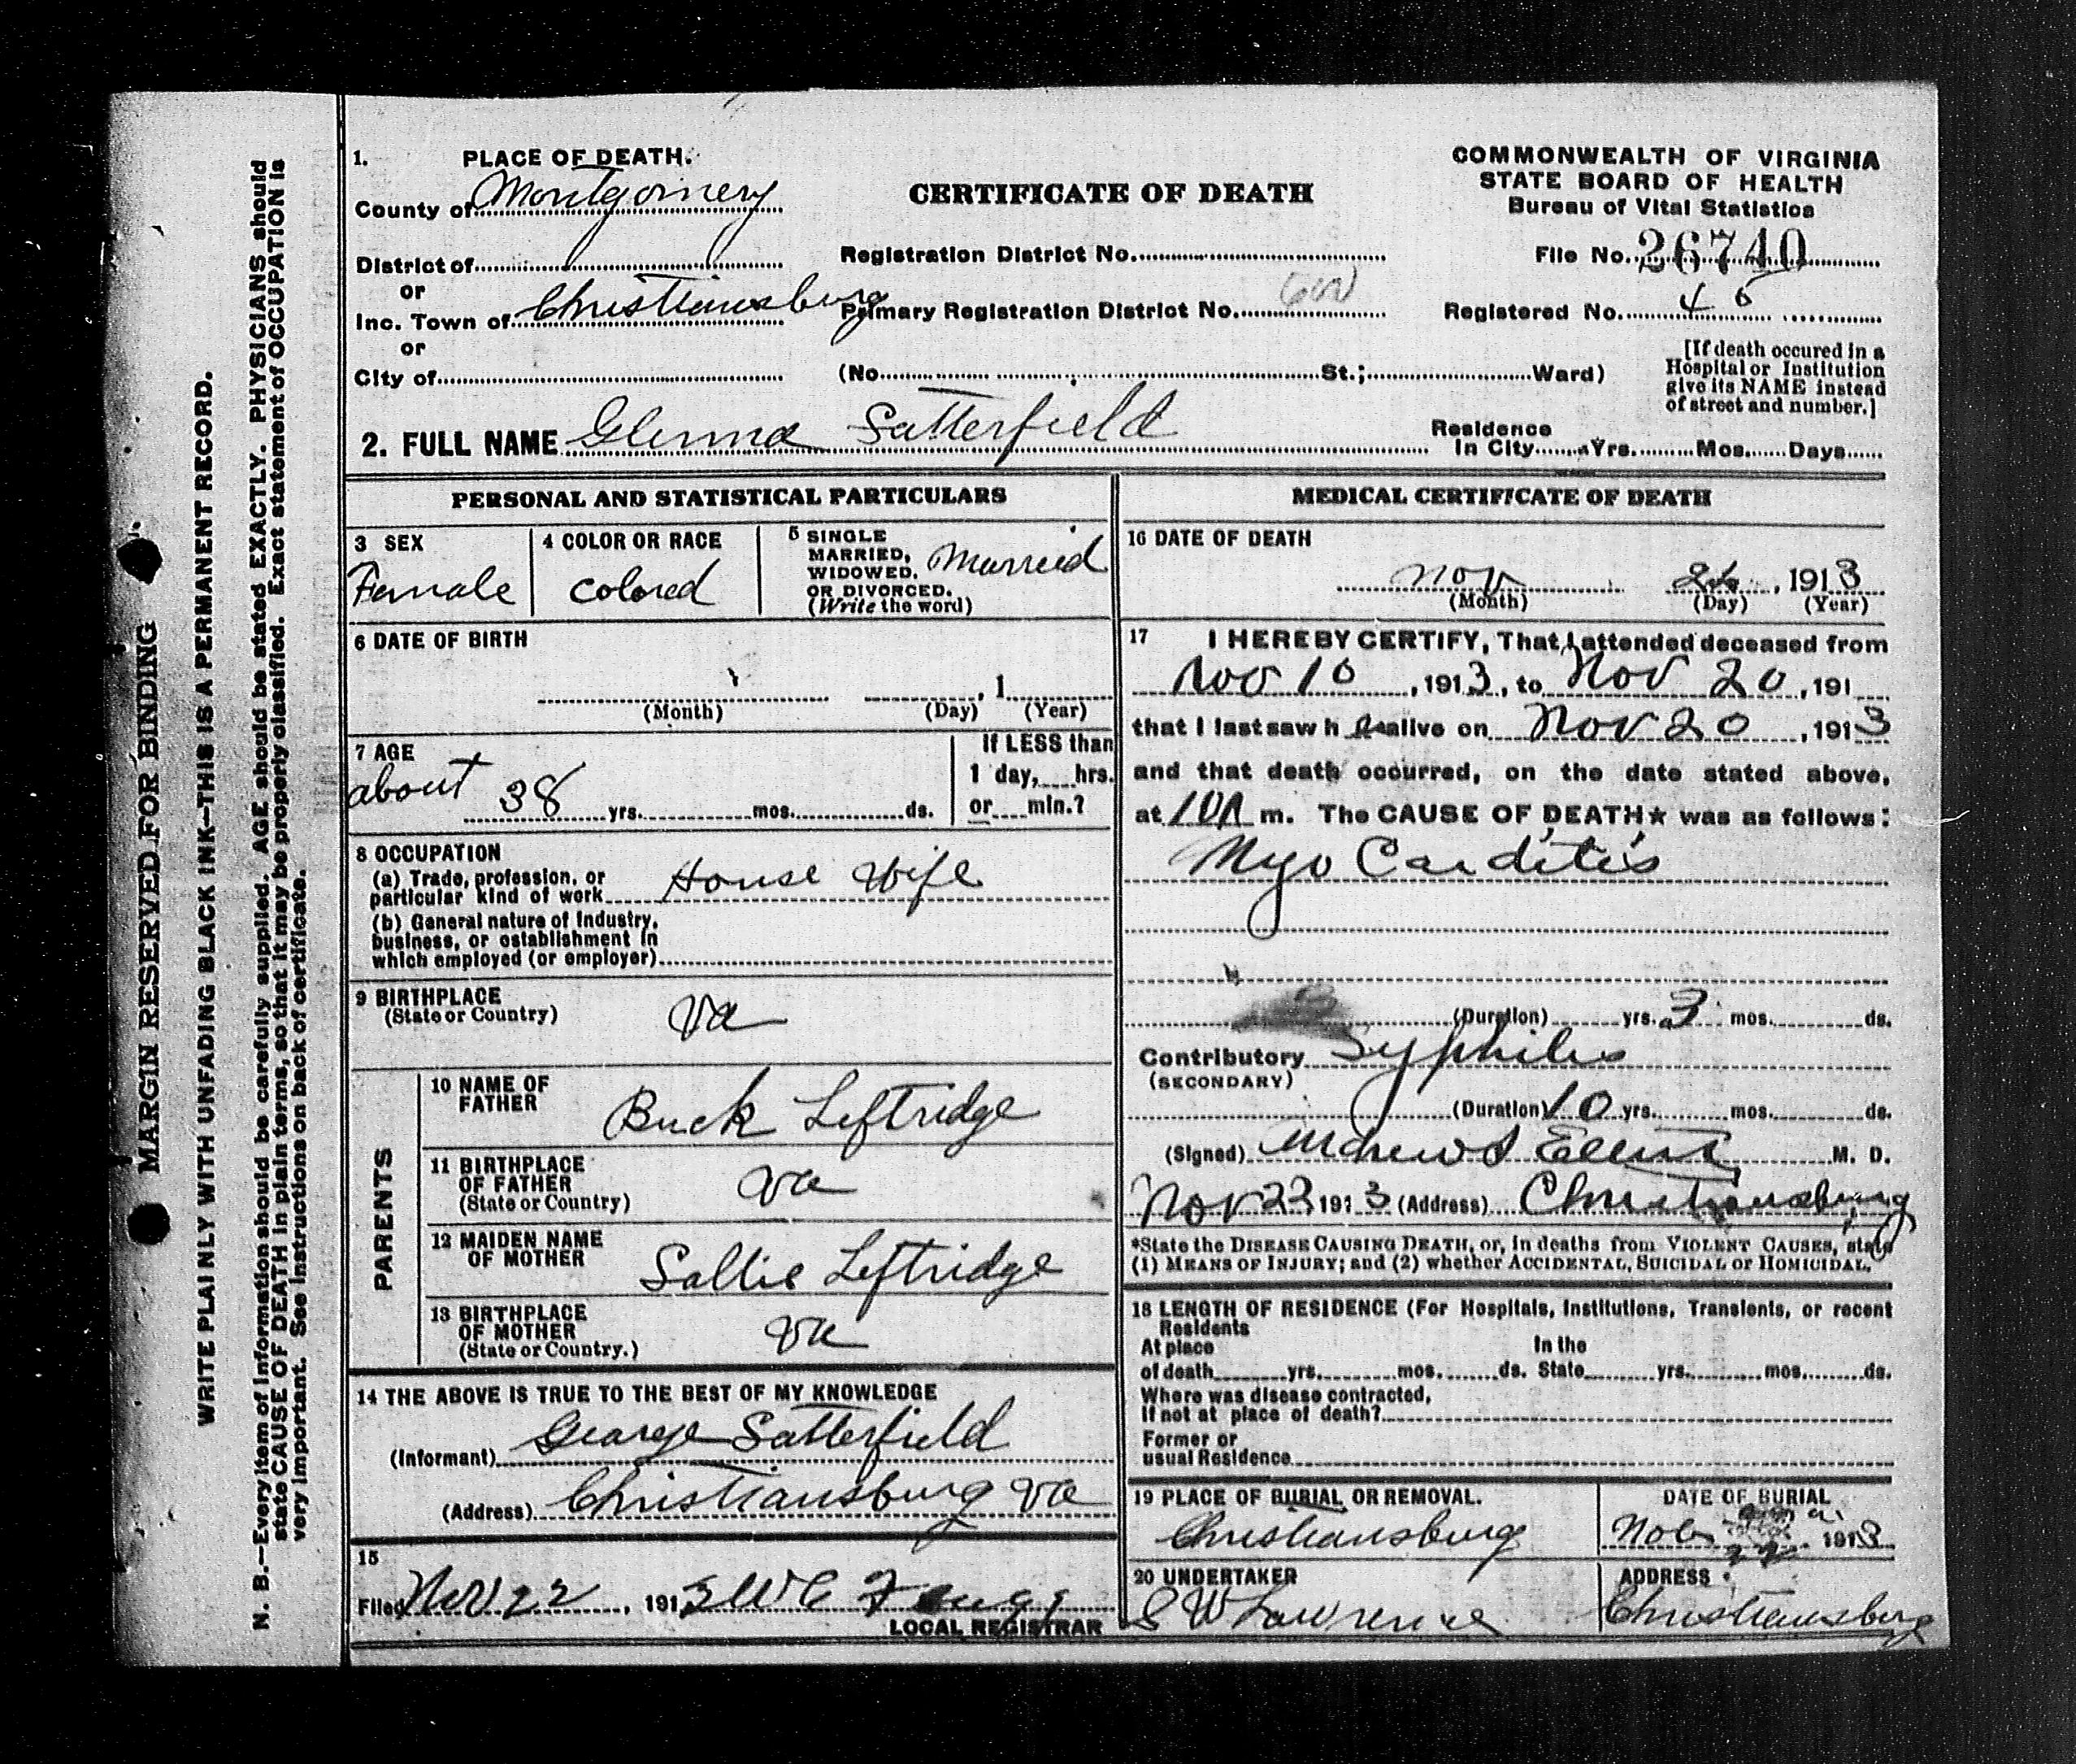 MARGIN RESERVED FOR BINDING
WRITE PLAINLY WITH UNFADING BLACK INK—THIS IS A PERMANENT RECORD.
N. B.—Every item of information should be carefully supplied. AGE should be stated EXACTLY. PHYSICIANS should
state CAUSE OF DEATH in plain terms, so that it may be properly classified. Exact statement of OCCUPATION is
very important. See instructions on back of certificate.
1. PLACE OF DEATH.
County of Montgomery
District of
or
Inc. Town of Christiansburg
or
City of
CERTIFICATE OF DEATH
Registration District No.
Primary Registration District No.
(No. St.; Ward)
COMMONWEALTH OF VIRGINIA
STATE BOARD OF HEALTH
Bureau of Vital Statistics
File No. 26740
Registered No. 45
[If death occured in a
Hospital or Institution
give its NAME instead
of street and number.]
2. FULL NAME Glenna Satterfield
Residence
In City Yrs. Mos. Days
PERSONAL AND STATISTICAL PARTICULARS
3 SEX
Female
4 COLOR OR RACE
Colored
5 SINGLE
MARRIED,
WIDOWED,
OR DIVORCED.
(Write the word)
Married
6 DATE OF BIRTH
, 1
(Month) (Day) (Year)
7 AGE
about 38 yrs. mos. ds.
If LESS than
1 day, hrs.
or min.?
8 OCCUPATION
(a) Trade, profession, or
particular kind of work House Wife
(b) General nature of Industry,
business, or establishment in
which employed (or employer)
9 BIRTHPLACE
(State or Country)
Va
PARENTS
10 NAME OF
FATHER
Buck Leftridge
11 BIRTHPLACE
OF FATHER
(State or Country)
Va
12 MAIDEN NAME
OF MOTHER
Sallie Leftridge
13 BIRTHPLACE
OF MOTHER
(State or Country.)
Va
14 THE ABOVE IS TRUE TO THE BEST OF MY KNOWLEDGE
(Informant) George Satterfield
(Address) Christiansburg Va
15
Filed Nov 22, 1913 W C
LOCAL REGISTRAR
MEDICAL CERTIFICATE OF DEATH
16 DATE OF DEATH
Nov , 1913
(Month) (Day) (Year)
17 I HEREBY CERTIFY, That I attended deceased from
Nov 10, 1913, to Nov 20, 191
that I last saw h alive on Nov 20, 1913
and that death occurred, on the date stated above,
at 10A m. The CAUSE OF DEATH★ was as follows:
Myo Carditis
(Duration) yrs. 3 mos. ds.
Contributory Syphilis
(SECONDARY)
(Duration) 10 yrs. mos. ds.
(Signed) M. D.
Nov 23 1913 (Address) Christiansburg
*State the DISEASE CAUSING DEATH, or, in deaths from VIOLENT CAUSES, state
(1) MEANS OF INJURY; and (2) whether ACCIDENTAL, SUICIDAL or HOMICIDAL.
18 LENGTH OF RESIDENCE (For Hospitals, Institutions, Transients, or recent
Residents
At place In the
of death yrs. mos. ds. State yrs. mos. ds.
Where was disease contracted,
If not at place of death?
Former or
usual Residence
19 PLACE OF BURIAL OR REMOVAL.
Christiansburg
DATE OF BURIAL
1913
20 UNDERTAKER
S W Lawrence
ADDRESS
Christiansburg